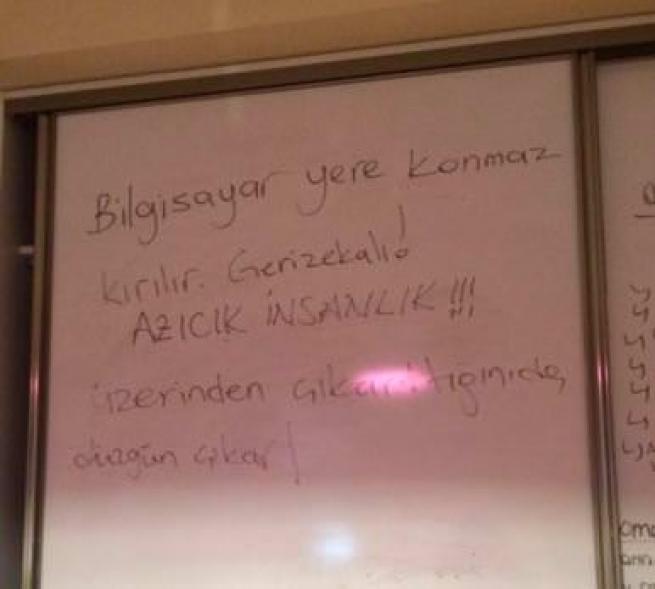 Bilgisayar yere konmaz
kırılır. Gerizekalı!
AZICIK İNSANLIK!!!
üzerinden
düzgün çıkar!